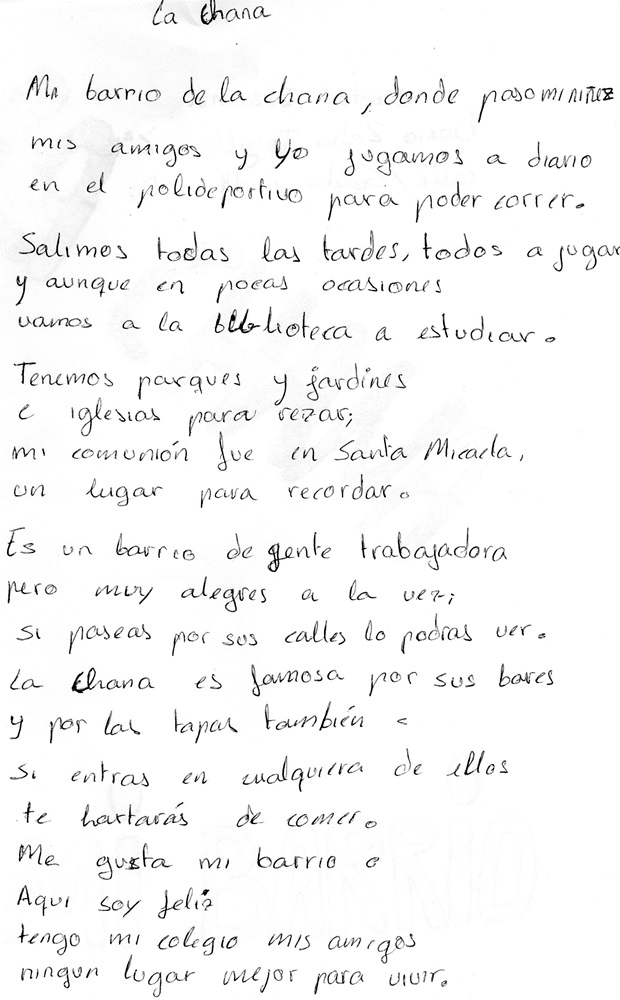 La Chana
Mi barrio de la chana, donde paso mi niñez
mis amigos y yo jugamos a diario
en el polideportivo para poder correr.
Salimos todas las tardes, todos a jugar
y aunque en pocas ocasiones
vamos a la biblioteca a estudiar.
Tenemos parques y jardines
e iglesias para rezar;
mi comunión fue en Santa Micaela,
un lugar para recordar.
Es un barrio de gente trabajadora
pero muy alegres a la vez;
si paseas por sus calles lo podras ver.
La Chana es famosa por sus bares
y por las tapas también
si entras en cualquiera de ellos
te hartarás de comer.
Me gusta mi barrio
Aqui soy feliz
tengo mi colegio mis amigos
ningun lugar mejor para vivir.